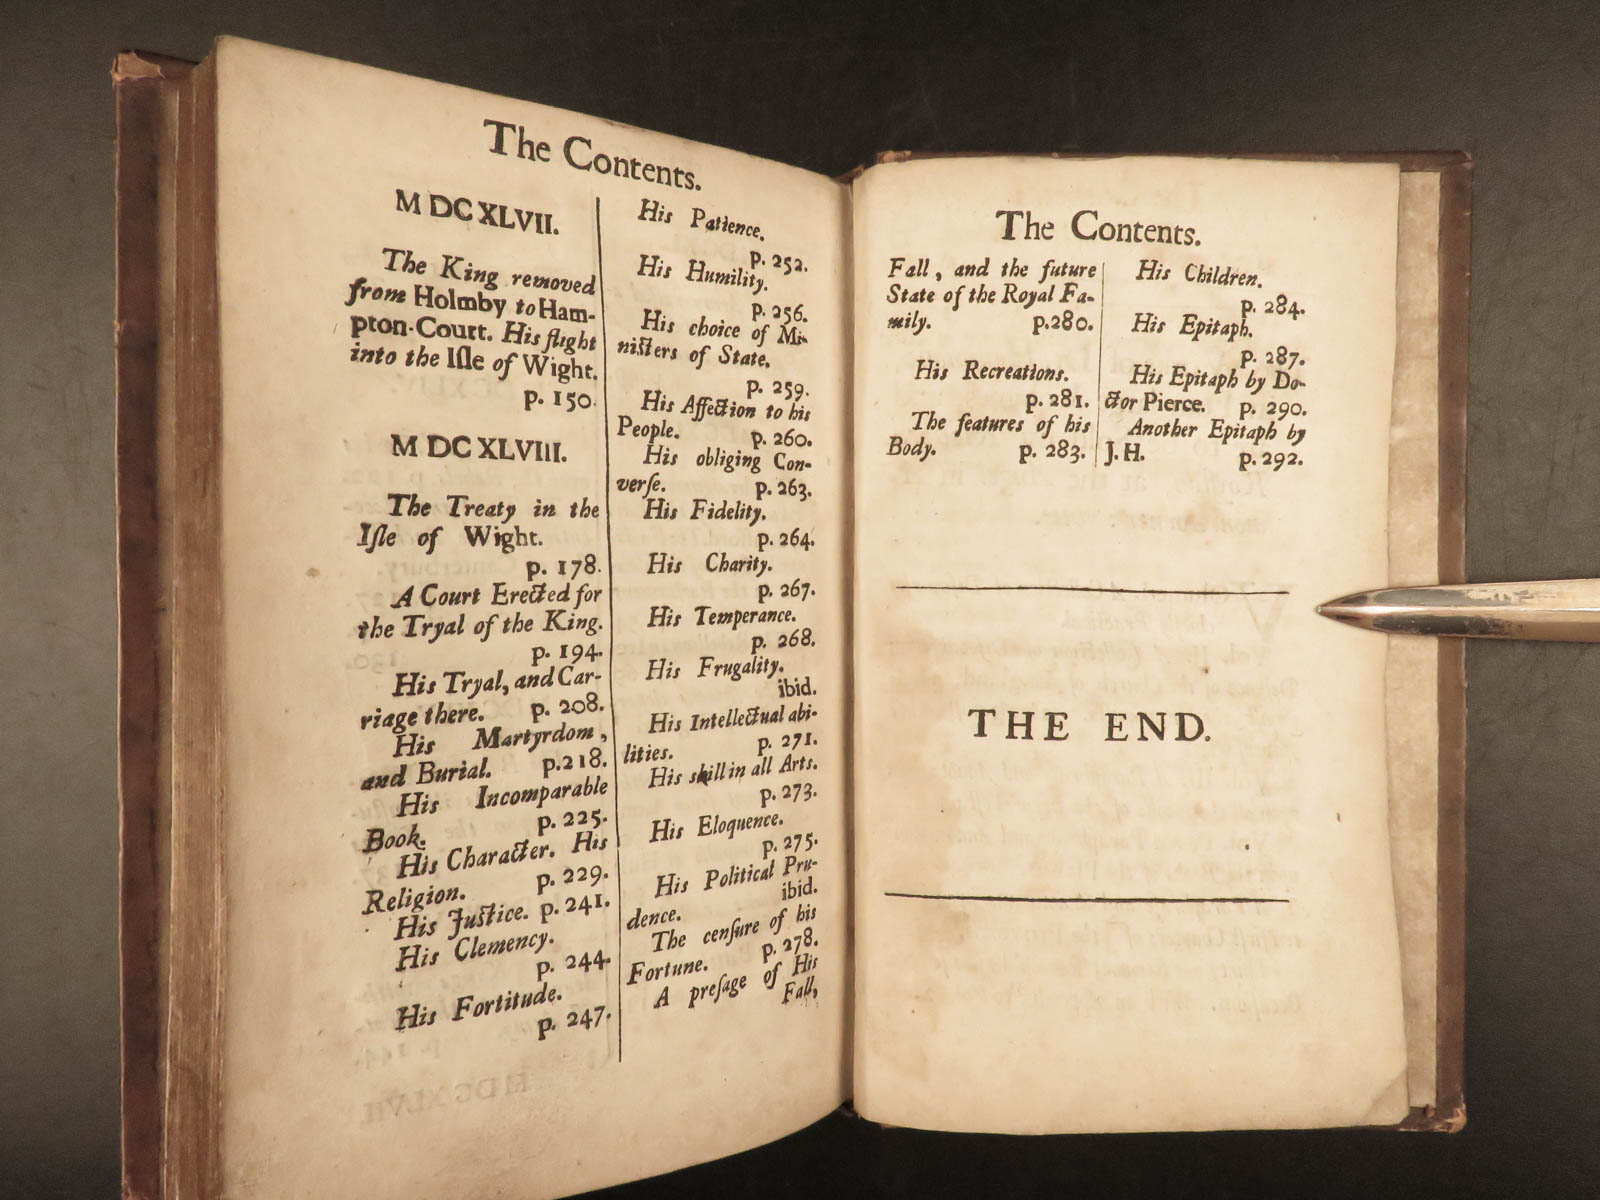 The Contents.
MDCXLVII.
The King removed
from Holmby to Ham-
pton-Court. His flight
into the Iſle of Wight.
p. 150.
MDCXLVIII.
The Treaty in the
Iſle of Wight.
p. 178.
A Court Erected for
the Tryal of the King.
p. 194.
His Tryal, and Car-
riage there. p. 208.
His Martyrdom,
and Burial. p.218.
His Incomparable
Book. p. 225.
His Character. His
Religion. p. 229.
His Juſtice. p. 241.
His Clemency.
p. 244.
His Fortitude.
p. 247.
His Patience.
p. 252.
His Humility.
p. 256.
His choice of Mi-
niſters of State.
p. 259.
His Affection to his
People. p. 260.
His obliging Con-
verſe. p. 263.
His Fidelity.
p. 264.
His Charity.
p. 267.
His Temperance.
p. 268.
His Frugality.
ibid.
His Intellectual abi-
lities. p. 271.
His skill in all Arts.
p. 273.
His Eloquence.
p. 275.
His Political Pru-
dence. ibid.
The cenſure of his
Fortune. p. 278.
A preſage of His
Fall,
The Contents.
Fall, and the future
State of the Royal Fa-
mily. p.280.
His Recreations.
p. 281.
The features of his
Body. p. 283.
His Children.
p. 284.
His Epitaph.
p. 287.
His Epitaph by Do-
ctor Pierce. p. 290.
Another Epitaph by
J. H. p. 292.
THE END.